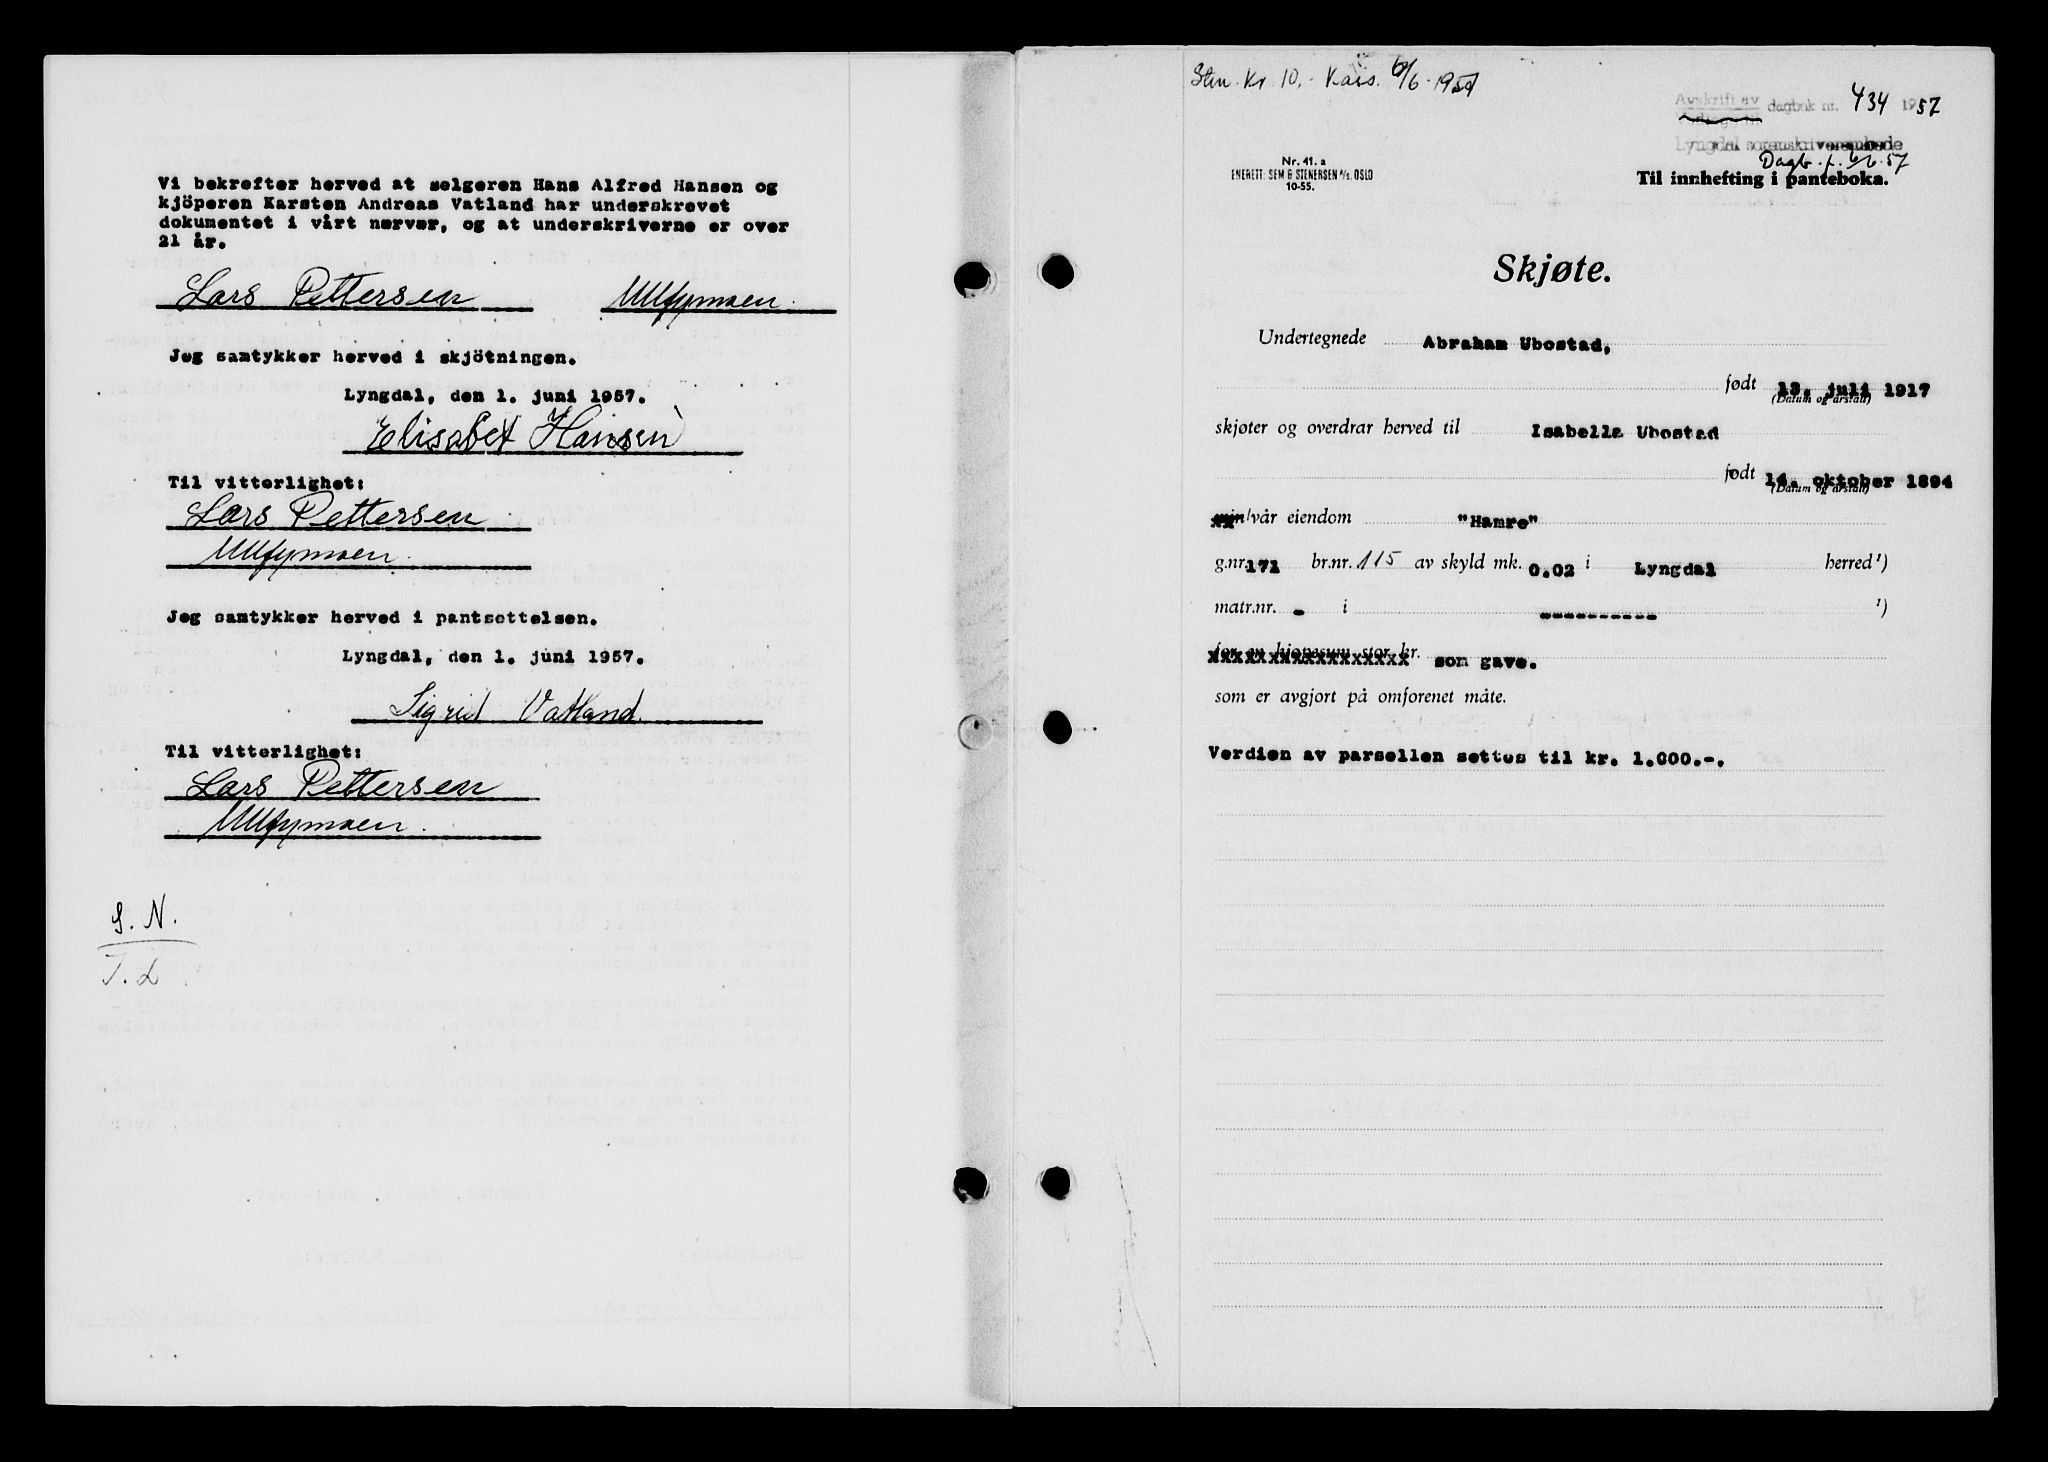 Vi bekrefter herved at selgeren Hans Alfred Hansen og
kjöperen Karsten Andreas Vatland har underskrevet
dokumentet i vårt nærvær, og at underskriverne er over
21 år.
Lars Pettersen
Jeg samtykker herved i skjötningen.
Lyngdal, den 1. juni 1957.
Elisabet Hansen
Til vitterlighet:
Lars Pettersen
Jeg samtykker herved i pantsettelsen.
Lyngdal, den 1. juni 1957.
Sigrid Vatland
Til vitterlighet:
Lars Pettersen
S. N.
T. L
Stm. Kr 10.- Kass. 6/6-1957
Avskrift av dagbok nr. 434 1957
Lyngdal sorenskriverembede
Dagb. f. 6/6-57
Nr. 41. a
ENERETT: SEM & STENERSEN A/S. OSLO
10-55.
Til innhefting i panteboka.
Skjøte.
Undertegnede Abraham Ubostad,
født 13. juli 1917
(Datum og årstall)
skjøter og overdrar herved til Isabella Ubostad
født 14. oktober 1894
(Datum og årstall)
min/vår eiendom "Hamre"
g.nr. 171 br.nr. 115 av skyld mk. 0.02 i Lyngdal herred ¹)
matr.nr. - i ---------- ¹)
for en kjøpesum stor kr. som gave.
som er avgjort på omforenet måte.
Verdien av parsellen settes til kr. 1.000.-.